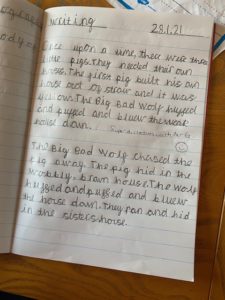 Writing
28.1.21
Once upon a time, there were three
little pigs. They needed their own
house. The first pig built his own
house out of straw and it was
yellow. The Big Bad Wolf huffed
and puffed and bluew the
house down.
The Big Bad Wolf chased the
pig away. The pig hid in the
wobbly, brown house. The Wolf
huffed and puffed and bluew
the house down. They ran and hid
in the sisters house.